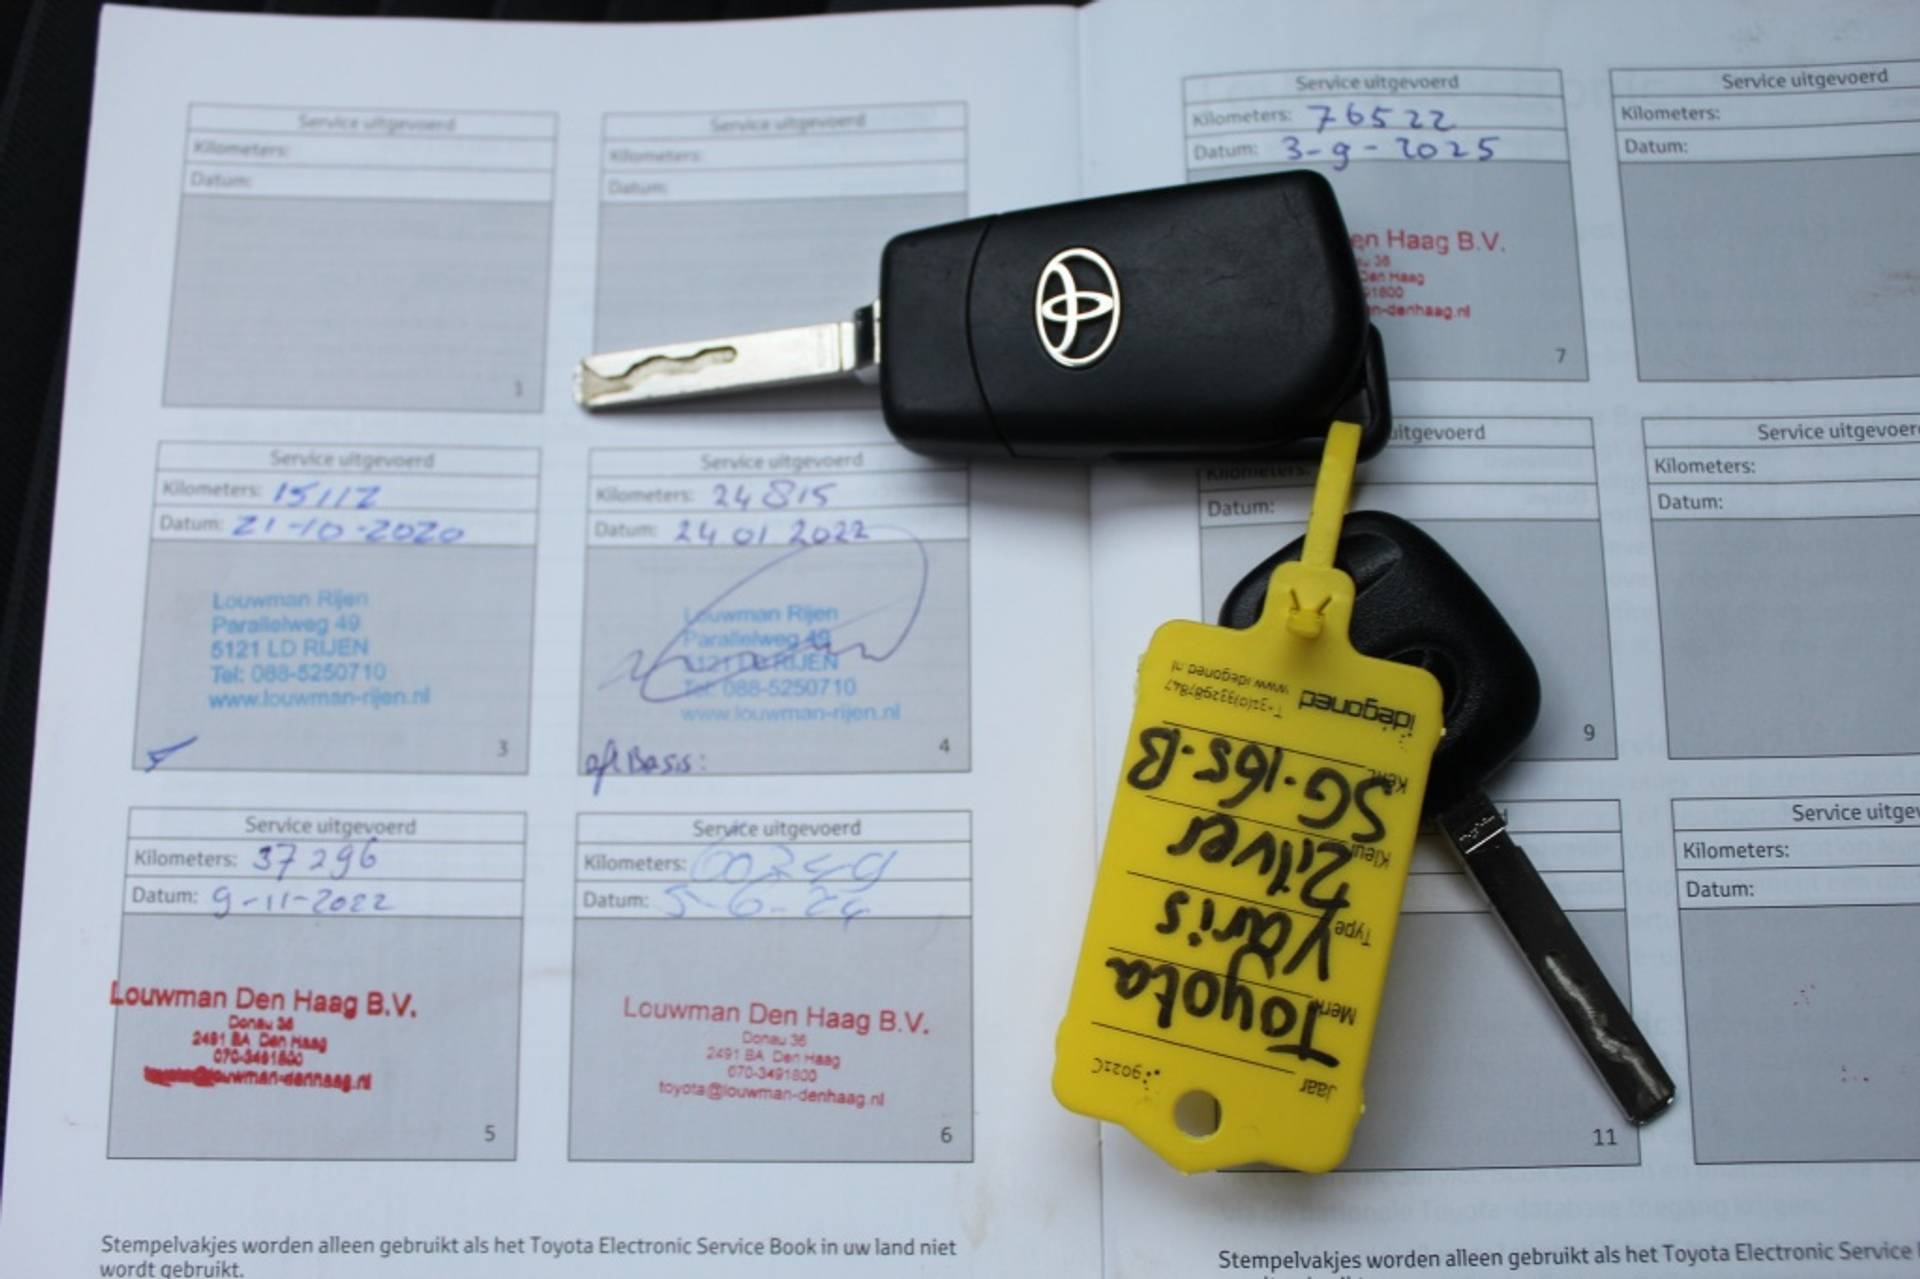 Service uitgevoerd
Kilometers:
Datum:
1
Service uitgevoerd
Kilometers:
Datum:
Service uitgevoerd
Kilometers: 15112
Datum: 21-10-2020
Louwman Rijen
Parallelweg 49
5121 LD RIJEN
Tel: 088-5250710
www.louwman-rijen.nl
3
Service uitgevoerd
Kilometers: 24815
Datum: 24 01 2022
Louwman Rijen
Parallelweg 49
5121 LD RIJEN
Tel: 088-5250710
www.louwman-rijen.nl
Basis:
4
Service uitgevoerd
Kilometers: 37296
Datum: 9-11-2022
Louwman Den Haag B.V.
Donau 36
2491 BA Den Haag
070-3491800
toyota@louwman-denhaag.nl
5
Service uitgevoerd
Kilometers:
Datum: 5-6-24
Louwman Den Haag B.V.
Donau 36
2491 BA Den Haag
070-3491800
toyota@louwman-denhaag.nl
6
Stempelvakjes worden alleen gebruikt als het Toyota Electronic Service Book in uw land niet
wordt gebruikt.
Service uitgevoerd
Kilometers: 76522
Datum: 3-9-2025
en Haag B.V.
36
Den Haag
91800
n-denhaag.nl
7
Service uitgevoerd
Kilometers:
Datum:
uitgevoerd
Kilometers:
Datum:
9
Service uitgevoer
Kilometers:
Datum:
11
Service uitgev
Kilometers:
Datum:
Stempelvakjes worden alleen gebruikt als het Toyota Electronic Service
Jaar
Merk Toyota
Type Yaris
Kleur Zilver
Kent. SG-165-B
idegoned
T+32(0)332987847
www.idegoned.nl